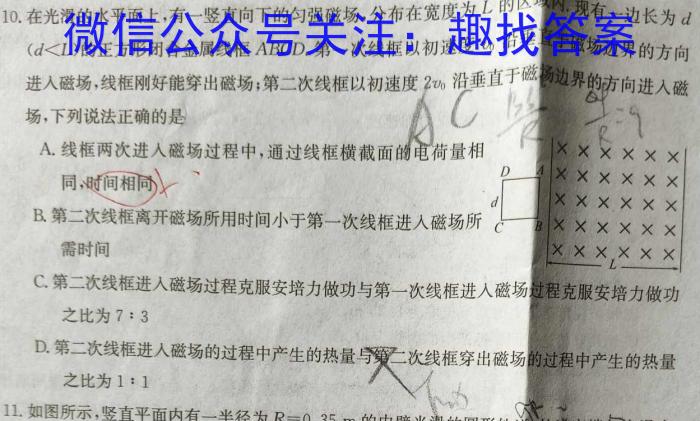 10. 在光滑的水平面上,有一竖直向下的匀强磁场,分布在宽度为 L 的区域内,现有一边长为 d
微信公众号关注：趣找答案
(d<L)的正方形闭合金属线框 ABCD,第一次线框以初速度 磁场边界的方向
进入磁场,线框刚好能穿出磁场;第二次线框以初速度 2v₀ 沿垂直于磁场边界的方向进入磁
场,下列说法正确的是
A C
A. 线框两次进入磁场过程中,通过线框横截面的电荷量相
同,时间相同
B. 第二次线框离开磁场所用时间小于第一次线框进入磁场所
需时间
D A
d
C B
× × × × × ×
× × × × × ×
× × × × × ×
× × × × × ×
× × × × × ×
L
C. 第二次线框进入磁场过程克服安培力做功与第一次线框进入磁场过程克服安培力做功
之比为 7∶3
D. 第二次线框进入磁场的过程中产生的热量与第二次线框穿出磁场的过程中产生的热量
之比为 1∶1
11. 如图所示,竖直平面内有一半径为 R=0.35 m